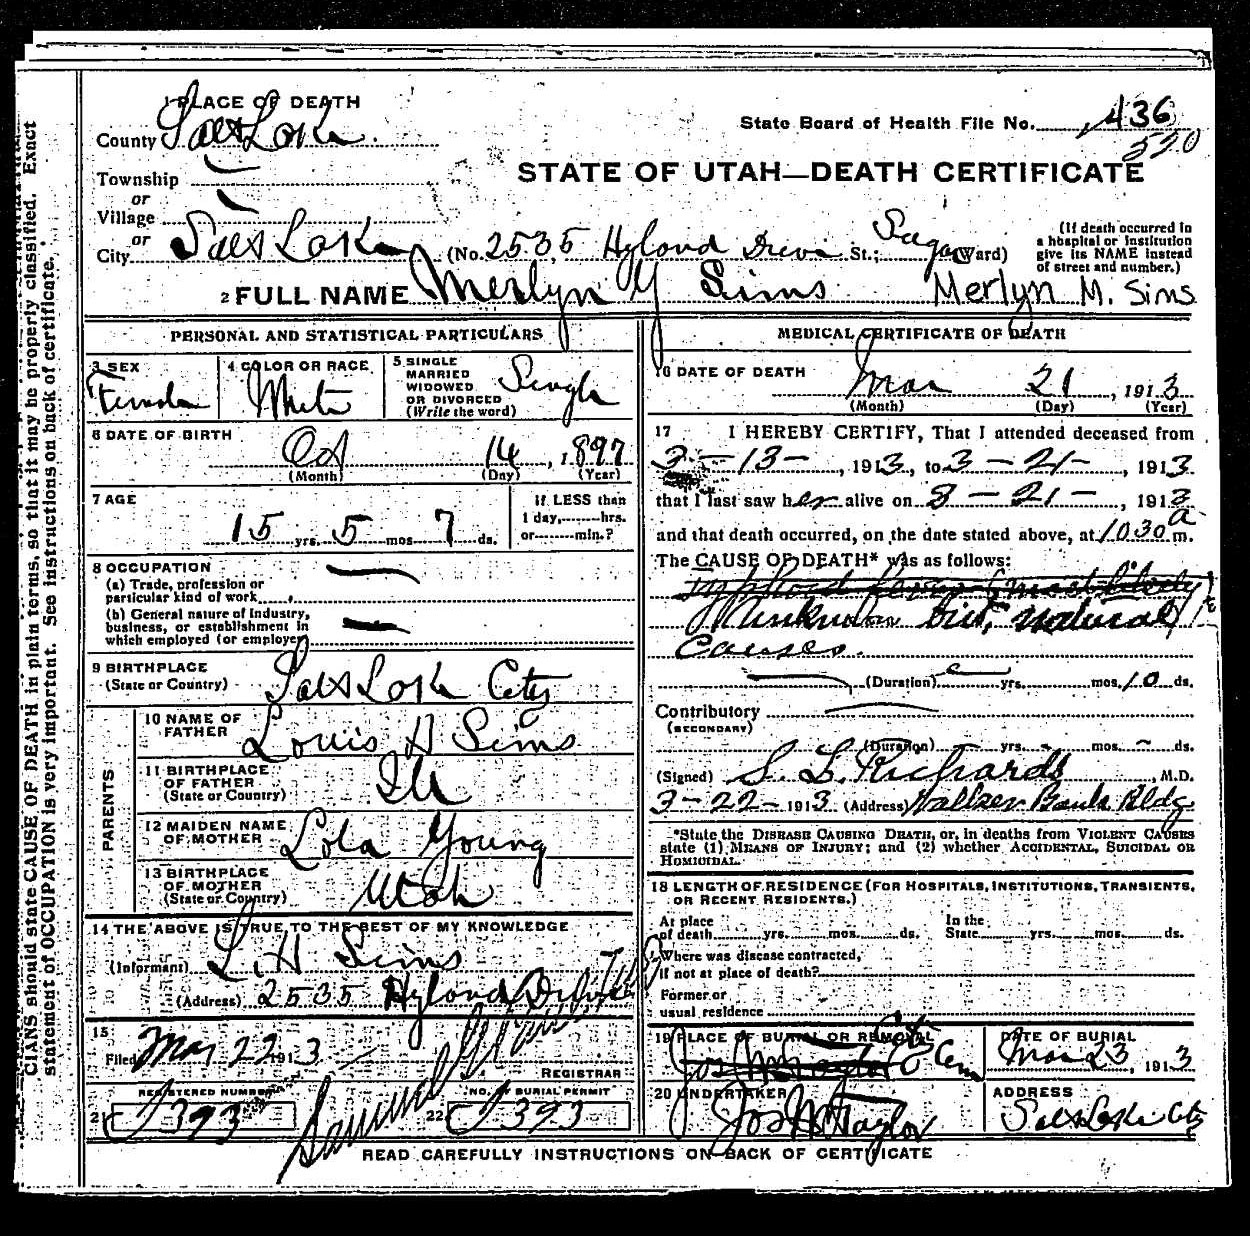 1 PLACE OF DEATH
County Salt Lake.
State Board of Health File No. 436
520
STATE OF UTAH—DEATH CERTIFICATE
Township
or
Village
or
City Salt Lake (No. 2535 Hyland Drive St.; Sugar Ward)
(If death occurred in a hospital or institution give its NAME instead of street and number.)
2 FULL NAME Merlyn Y Sims Merlyn M. Sims
PERSONAL AND STATISTICAL PARTICULARS
3 SEX
Female
4 COLOR OR RACE
White
5 SINGLE
MARRIED
WIDOWED
OR DIVORCED
(Write the word)
Single
6 DATE OF BIRTH
Oct 14, 1897
(Month) (Day) (Year)
7 AGE
15 yrs. 5 mos. 7 ds.
If LESS than
1 day, hrs.
or min.?
8 OCCUPATION
(a) Trade, profession or
particular kind of work
(b) General nature of industry,
business, or establishment in
which employed (or employer)
9 BIRTHPLACE
(State or Country) Salt Lake City
PARENTS
10 NAME OF
FATHER Louis H Sims
11 BIRTHPLACE
OF FATHER
(State or Country) Ill
12 MAIDEN NAME
OF MOTHER Lola Young
13 BIRTHPLACE
OF MOTHER
(State or Country) Utah
14 THE ABOVE IS TRUE TO THE BEST OF MY KNOWLEDGE
(Informant) L. H Sims
(Address) 2535 Hyland Drive
15
Filed Mar 22 1913
REGISTRAR
REGISTERED NUMBER
21 J 393
NO. OF BURIAL PERMIT
22 J 393
MEDICAL CERTIFICATE OF DEATH
16 DATE OF DEATH
Mar 21, 1913
(Month) (Day) (Year)
17 I HEREBY CERTIFY, That I attended deceased from
3-13-, 1913, to 3-21-, 1913
that I last saw her alive on 3-21-, 1913
and that death occurred, on the date stated above, at 1030 a m.
The CAUSE OF DEATH* was as follows:
Typhoid fever (most likely
Unknown but natural
Causes.
(Duration) yrs. mos. 10 ds.
Contributory
(SECONDARY)
(Duration) yrs. mos. ds.
(Signed) S. L. Richards, M.D.
3-22-1913 (Address) Walker Bank Bldg
*State the DISEASE CAUSING DEATH, or, in deaths from VIOLENT CAUSES
state (1) MEANS OF INJURY; and (2) whether ACCIDENTAL, SUICIDAL OR
HOMICIDAL.
18 LENGTH OF RESIDENCE (FOR HOSPITALS, INSTITUTIONS, TRANSIENTS,
OR RECENT RESIDENTS.)
At place
of death yrs. mos. ds.
In the
State yrs. mos. ds.
Where was disease contracted,
if not at place of death?
Former or
usual residence
19 PLACE OF BURIAL OR REMOVAL
Jos Wm Taylor City Cem
DATE OF BURIAL
Mar 23, 1913
20 UNDERTAKER
Jos Wm Taylor
ADDRESS
Salt Lake City
READ CAREFULLY INSTRUCTIONS ON BACK OF CERTIFICATE
CIANS should state CAUSE OF DEATH in plain terms, so that it may be properly classified. Exact
statement of OCCUPATION is very important. See instructions on back of certificate.